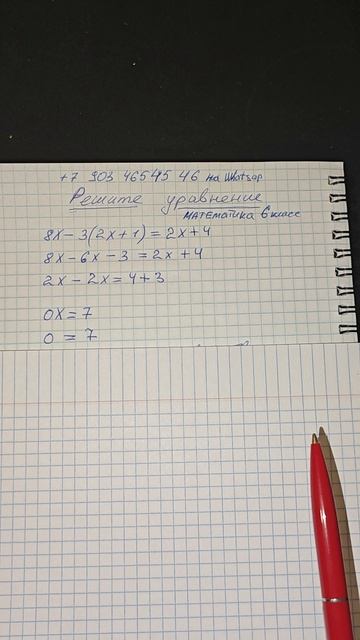 +7 903 46545 46 на Whatsap
Решите уравнение
МАТЕМАТИКА 6 класс
8x - 3(2x+1) = 2x+4
8x - 6x - 3 = 2x + 4
2x - 2x = 4 + 3
0x = 7
0 = 7